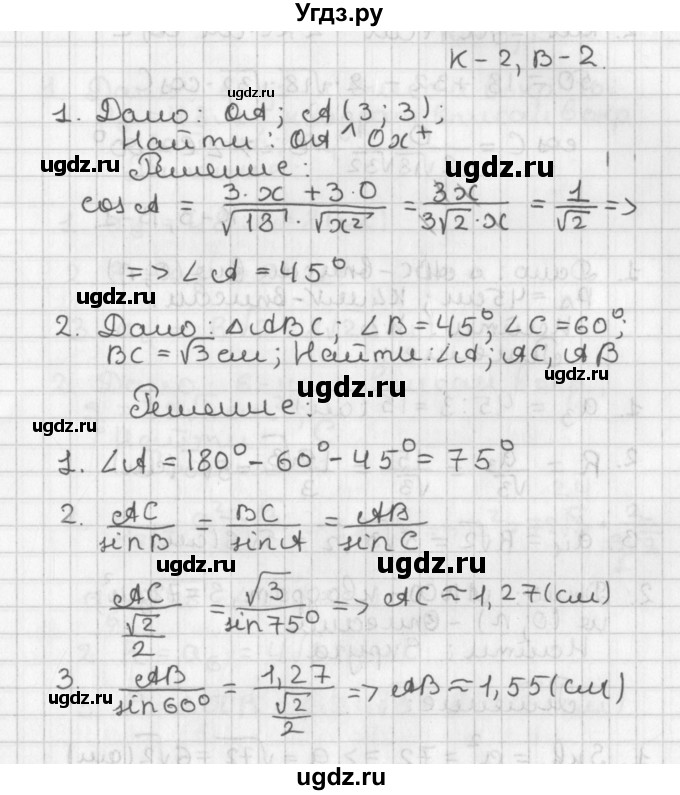 Угдз.ру
К-2, В-2.
1. Дано: OA; A(3; 3);
Найти: OA ^ Ox⁺
ugdz.ru
Решение:
ugdz.ru
cos A = (3·x + 3·0)/(√18 · √x²) = 3x/(3√2·x) = 1/√2 =>
=> ∠A = 45°
ugdz.ru
2. Дано: △ABC; ∠B = 45°; ∠C = 60°;
BC = √3 см; Найти: ∠A; AC, AB
ugdz.ru
ugdz.ru
Решение:
ugdz.ru
1. ∠A = 180° - 60° - 45° = 75°
2. AC/sin B = BC/sin A = AB/sin C
ugdz.ru
ugdz.ru
AC/(√2/2) = √3/sin 75° => AC ≈ 1,27 (см)
3 AB/sin 60° = 1,27/(√2/2) => AB ≈ 1,55 (см)
ugdz.ru
ugdz.ru